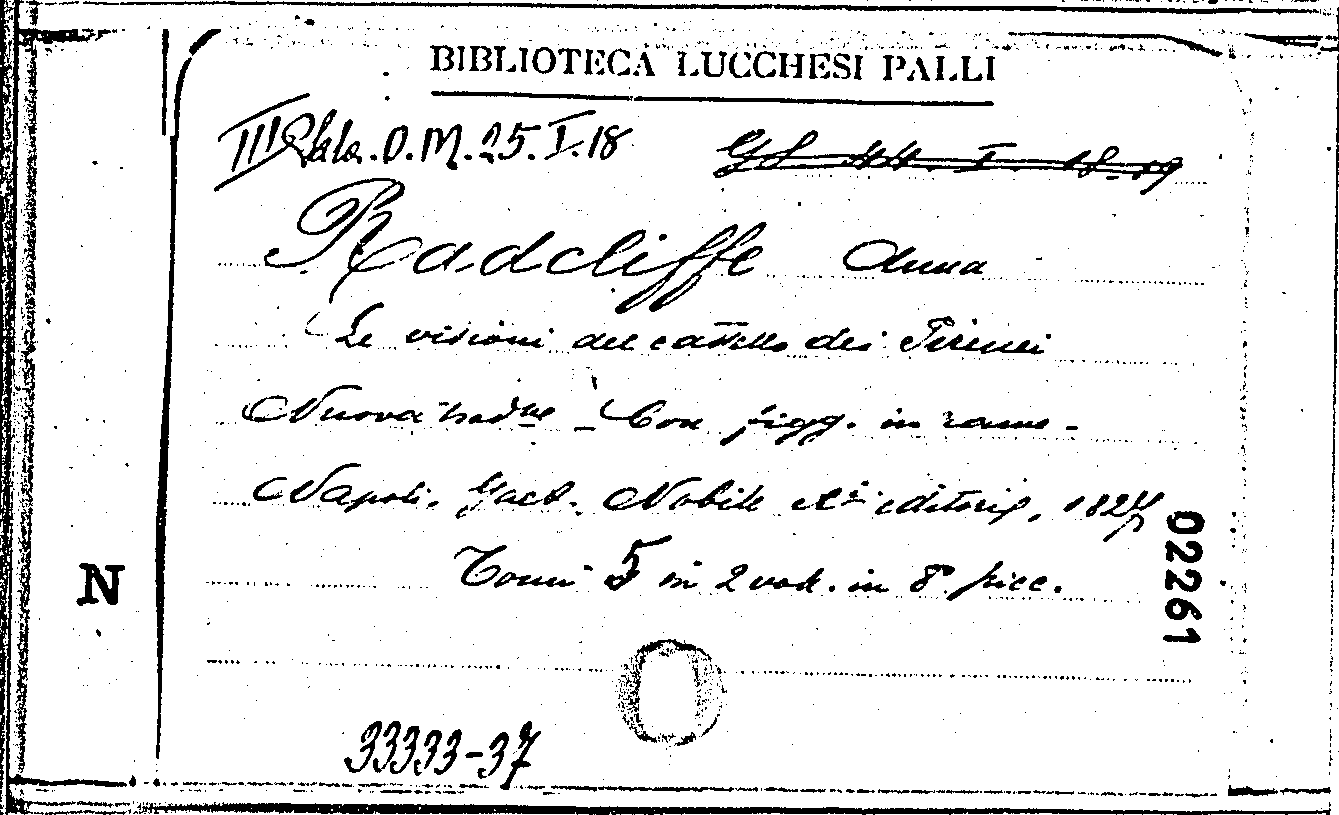 BIBLIOTECA LUCCHESI PALLI
III Sala. O. M. 25. I. 18
Radcliffe Anna
Le visioni del castello dei Pirenei
Nuova trad.ne - Con figg. in rame -
Napoli, Gaet. Nobile
Tomi 5 in 2 voll. in 8° picc.
02261
N
33333-37